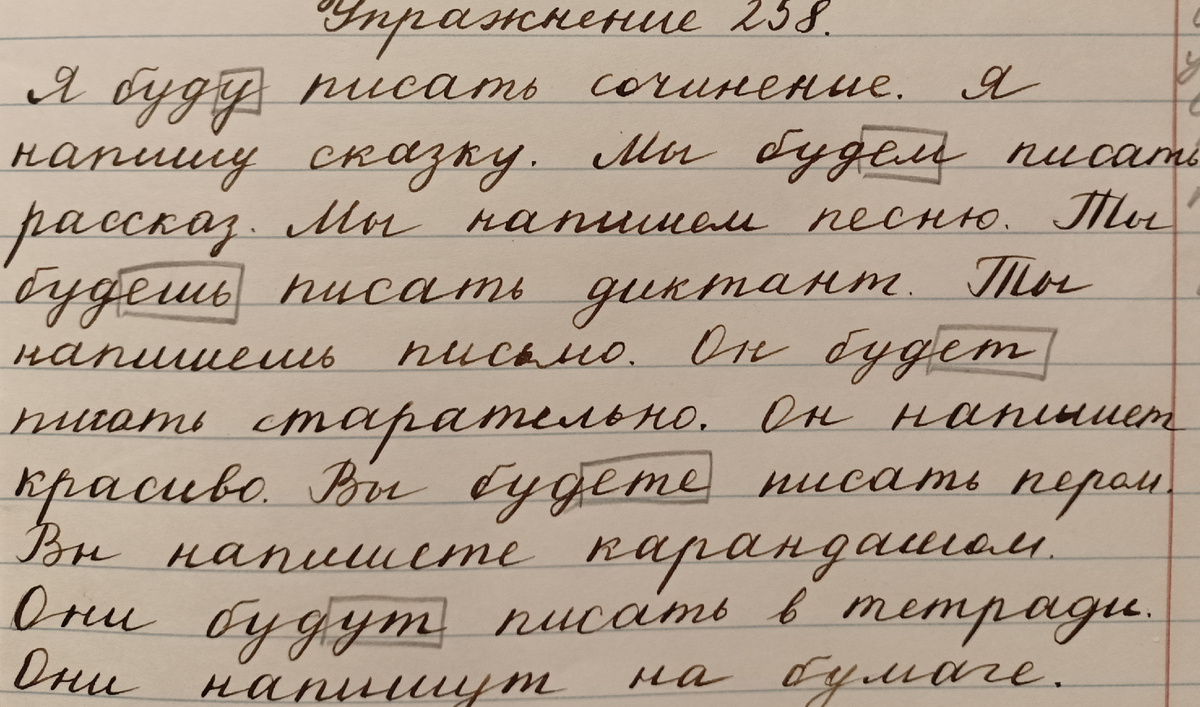 Упражнение 258.
Я буду писать сочинение. Я
напишу сказку. Мы будем писать
рассказ. Мы напишем песню. Ты
будешь писать диктант. Ты
напишешь письмо. Он будет
писать старательно. Он напишет
красиво. Вы будете писать пером.
Вы напишете карандашом.
Они будут писать в тетради.
Они напишут на бумаге.